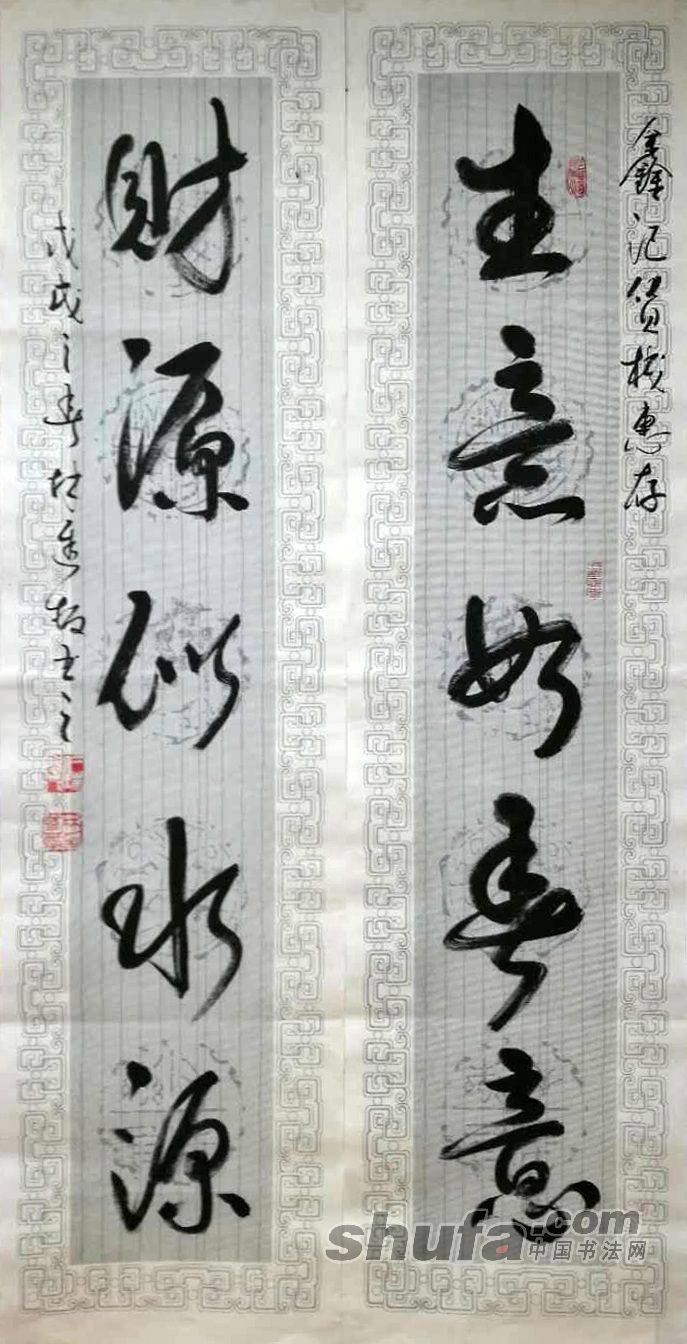 鑫记货栈惠存
生意如春意
財源似水源
戊戌之春
shufa.com
中国书法网